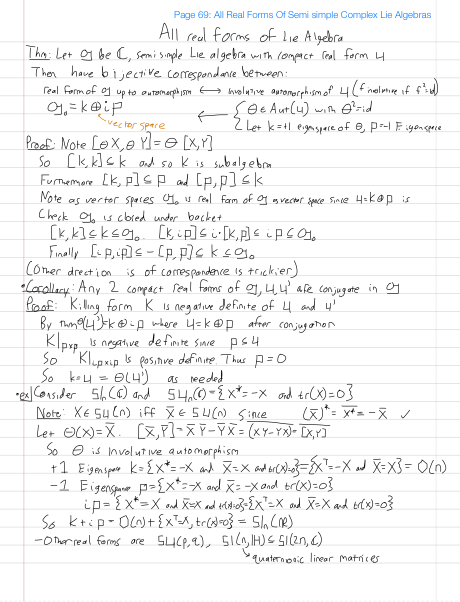 Page 69: All Real Forms Of Semi simple Complex Lie Algebras
All real forms of Lie Algebra
Thm: Let g be ℂ, semi simple Lie algebra with compact real form u
Then have bijective correspondance between:
real form of g up to automorphism ⟷ involutive automorphism of u (f involutive if f²=id)
g₀ = k⊕ip ⟵ {θ∈Aut(u) with θ²=id
vector space Let k=+1 eigenspace of θ, p=-1 Eigenspace
Proof: Note [θX, θY] = θ[X,Y]
So [k,k]⊆k and so k is subalgebra
Furthermore [k,p]⊆p and [p,p]⊆k
Note as vector spaces g₀ is real form of g as vector space since u=k⊕p is
Check g₀ is closed under bracket
[k,k]⊆k⊆g₀. [k,ip]⊆i·[k,p]⊆ip⊆g₀
Finally [ip,ip]⊆-[p,p]⊆k⊆g₀
(Other direction is of correspondence is trickier)
•Corollary: Any 2 compact real forms of g, u,u' are conjugate in g
Proof: Killing form K is negative definite of u and u'
By thm θ(u')=k⊕ip where u=k⊕p after conjugation
K|pxp is negative definite since p⊆u
So K|ipxip is positive definite. Thus p=0
So k=u = θ(u') as needed
•ex| Consider sl_n(ℂ) and su_n(ℂ) = {X*=-X and tr(X)=0}
Note: X∈su(n) iff X̄∈su(n) since (X̄)* = X̄* = -X̄ ✓
Let θ(X)=X̄. [X̄,Ȳ]=X̄Ȳ-ȲX̄=(XY-YX)‾=[X,Y]‾
So θ is Involutive automorphism
+1 Eigenspace k={X*=-X and X̄=X and tr(X)=0}={Xᵀ=-X and X̄=X} = O(n)
-1 Eigenspace p={X*=-X and X̄=-X and tr(X)=0}
ip={X*=X and X̄=X and tr(X)=0}={Xᵀ=X and X̄=X and tr(X)=0}
So k+ip = O(n)+{Xᵀ=X, tr(X)=0} = sl_n(ℝ)
-Other real forms are su(p,q), sl(n,ℍ)⊆sl(2n,ℂ)
quaternionic linear matrices